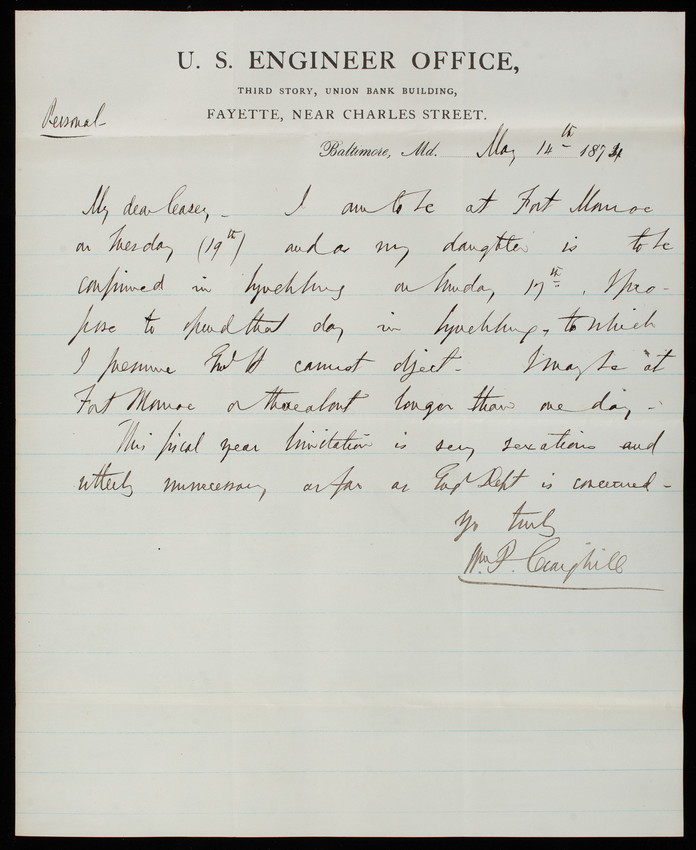 U. S. ENGINEER OFFICE,
THIRD STORY, UNION BANK BUILDING,
FAYETTE, NEAR CHARLES STREET.
Personal-
Baltimore, Md. May 14th 1874
My dear Casey, - I am to be at Fort Monroe
on Tuesday (19th) and as my daughter is to be
confirmed in Lynchburg on Sunday 17th, I pro-
pose to spend that day in Lynchburg, to which
I presume cannot object - I may be at
Fort Monroe or thereabout longer than one day -
This fiscal year limitation is very vexatious and
utterly unnecessary as far as Eng Dept is concerned -
Yr truly
Wm. P. Craighill